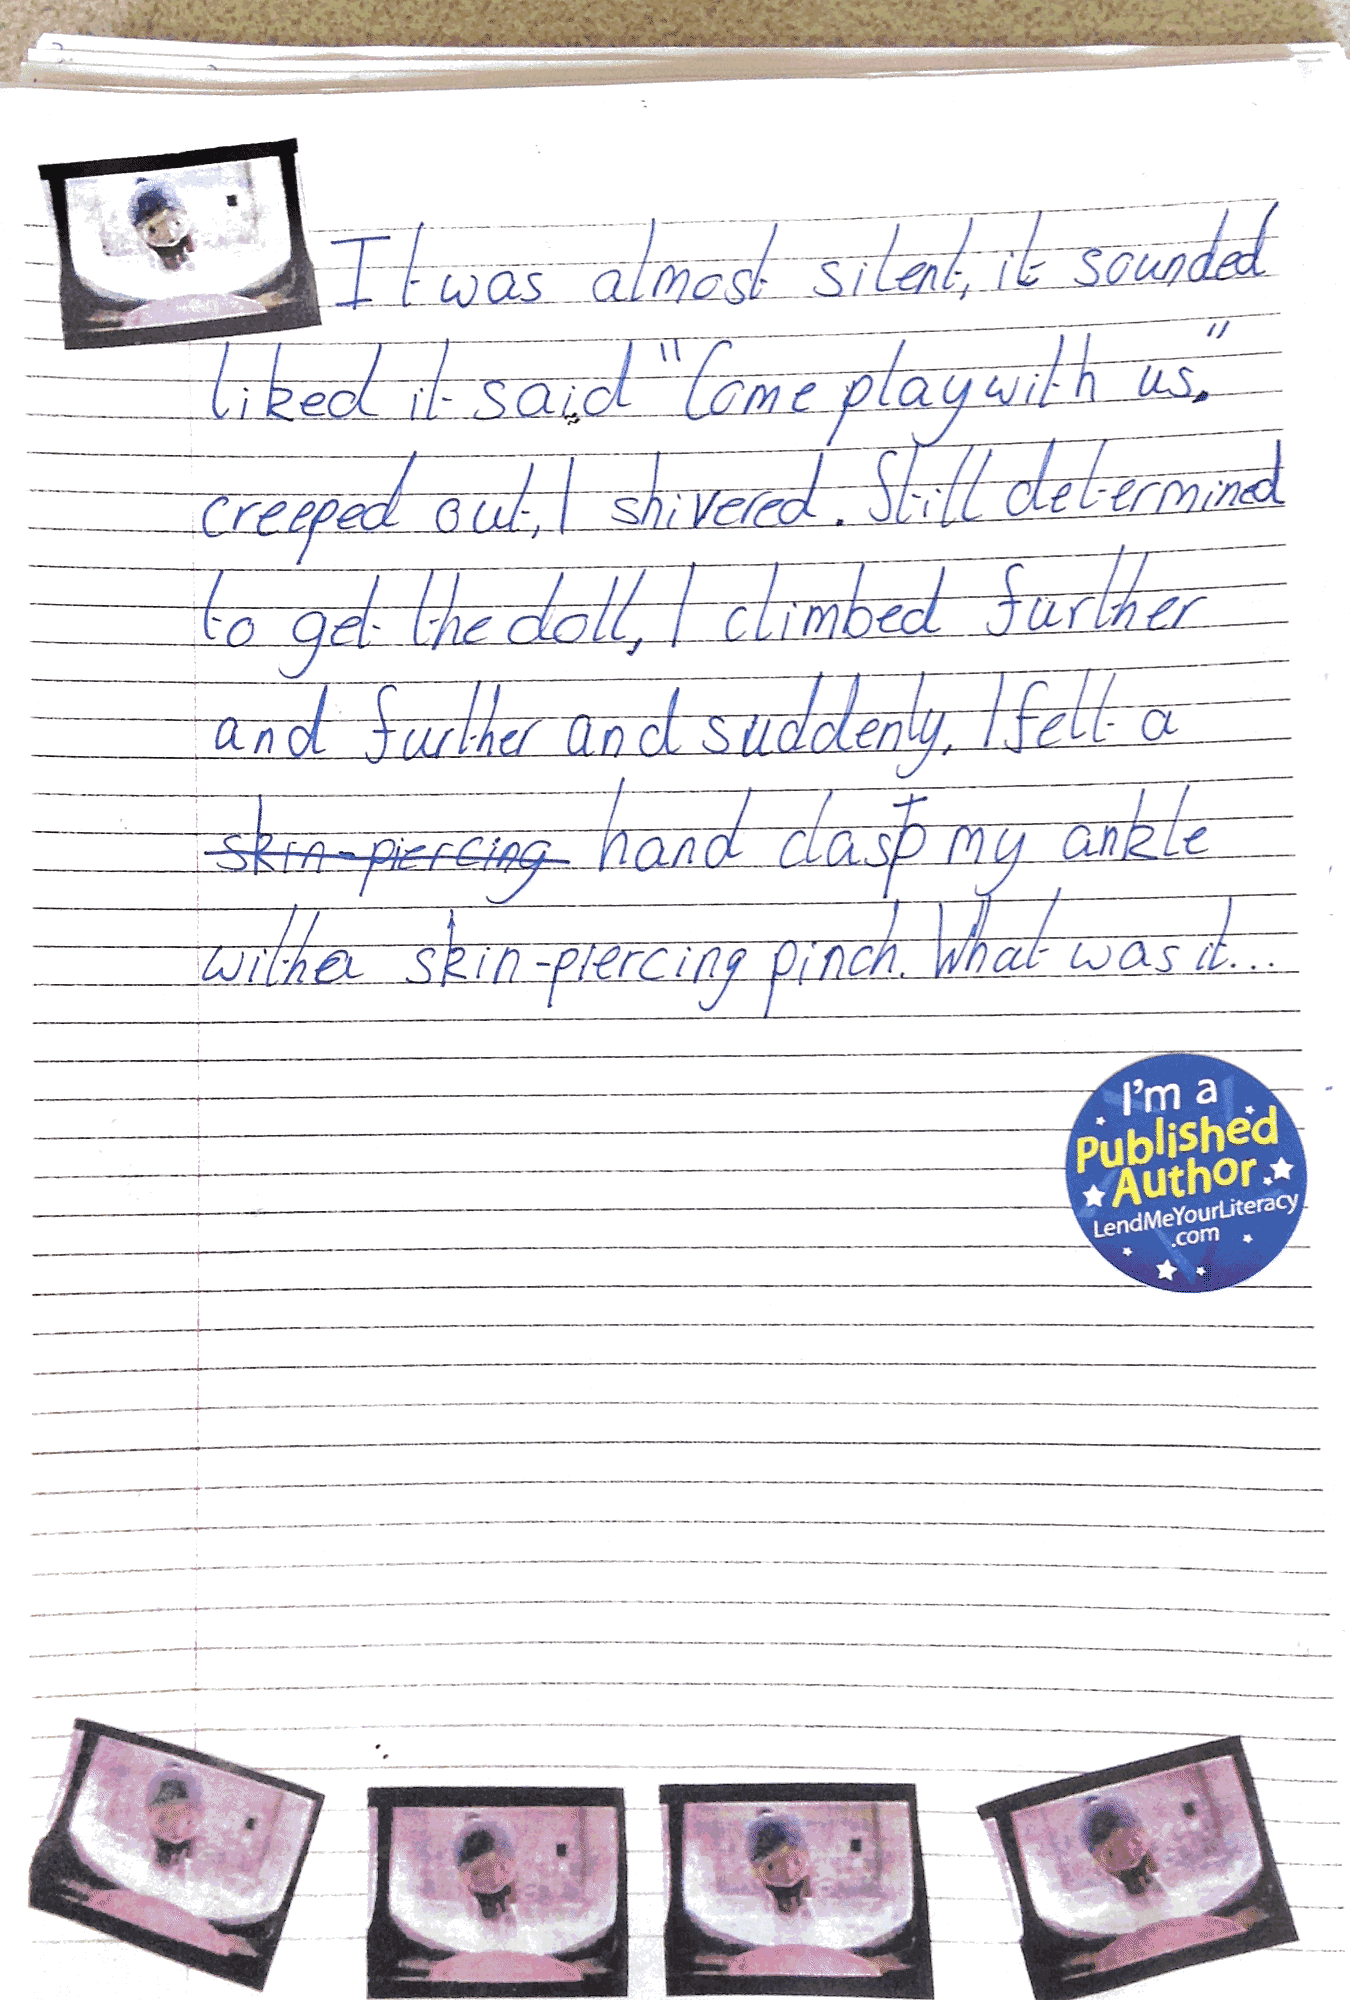 It was almost silent, it sounded
liked it said "Come play with us."
creeped out, I shivered. Still determined
to get the doll, I climbed further
and further and suddenly, I felt a
skin-piercing hand clasp my ankle
with a skin-piercing pinch. What was it...
I'm a
Published
Author
LendMeYourLiteracy
.com